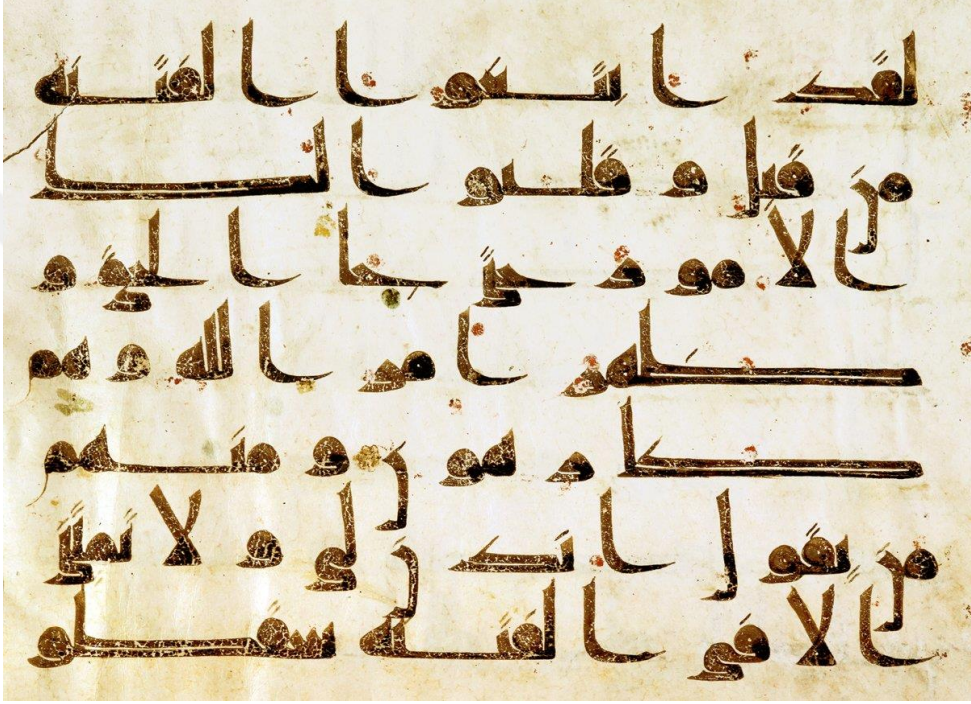 لقد ابتغوا الفتنه
من قبل و قلبوا لك
الامور حتى جا الحق و
ظهر امر الله و هم
كرهون و منهم
من يقول ائذن لي و لا تفتني
الا في الفتنه سقطو